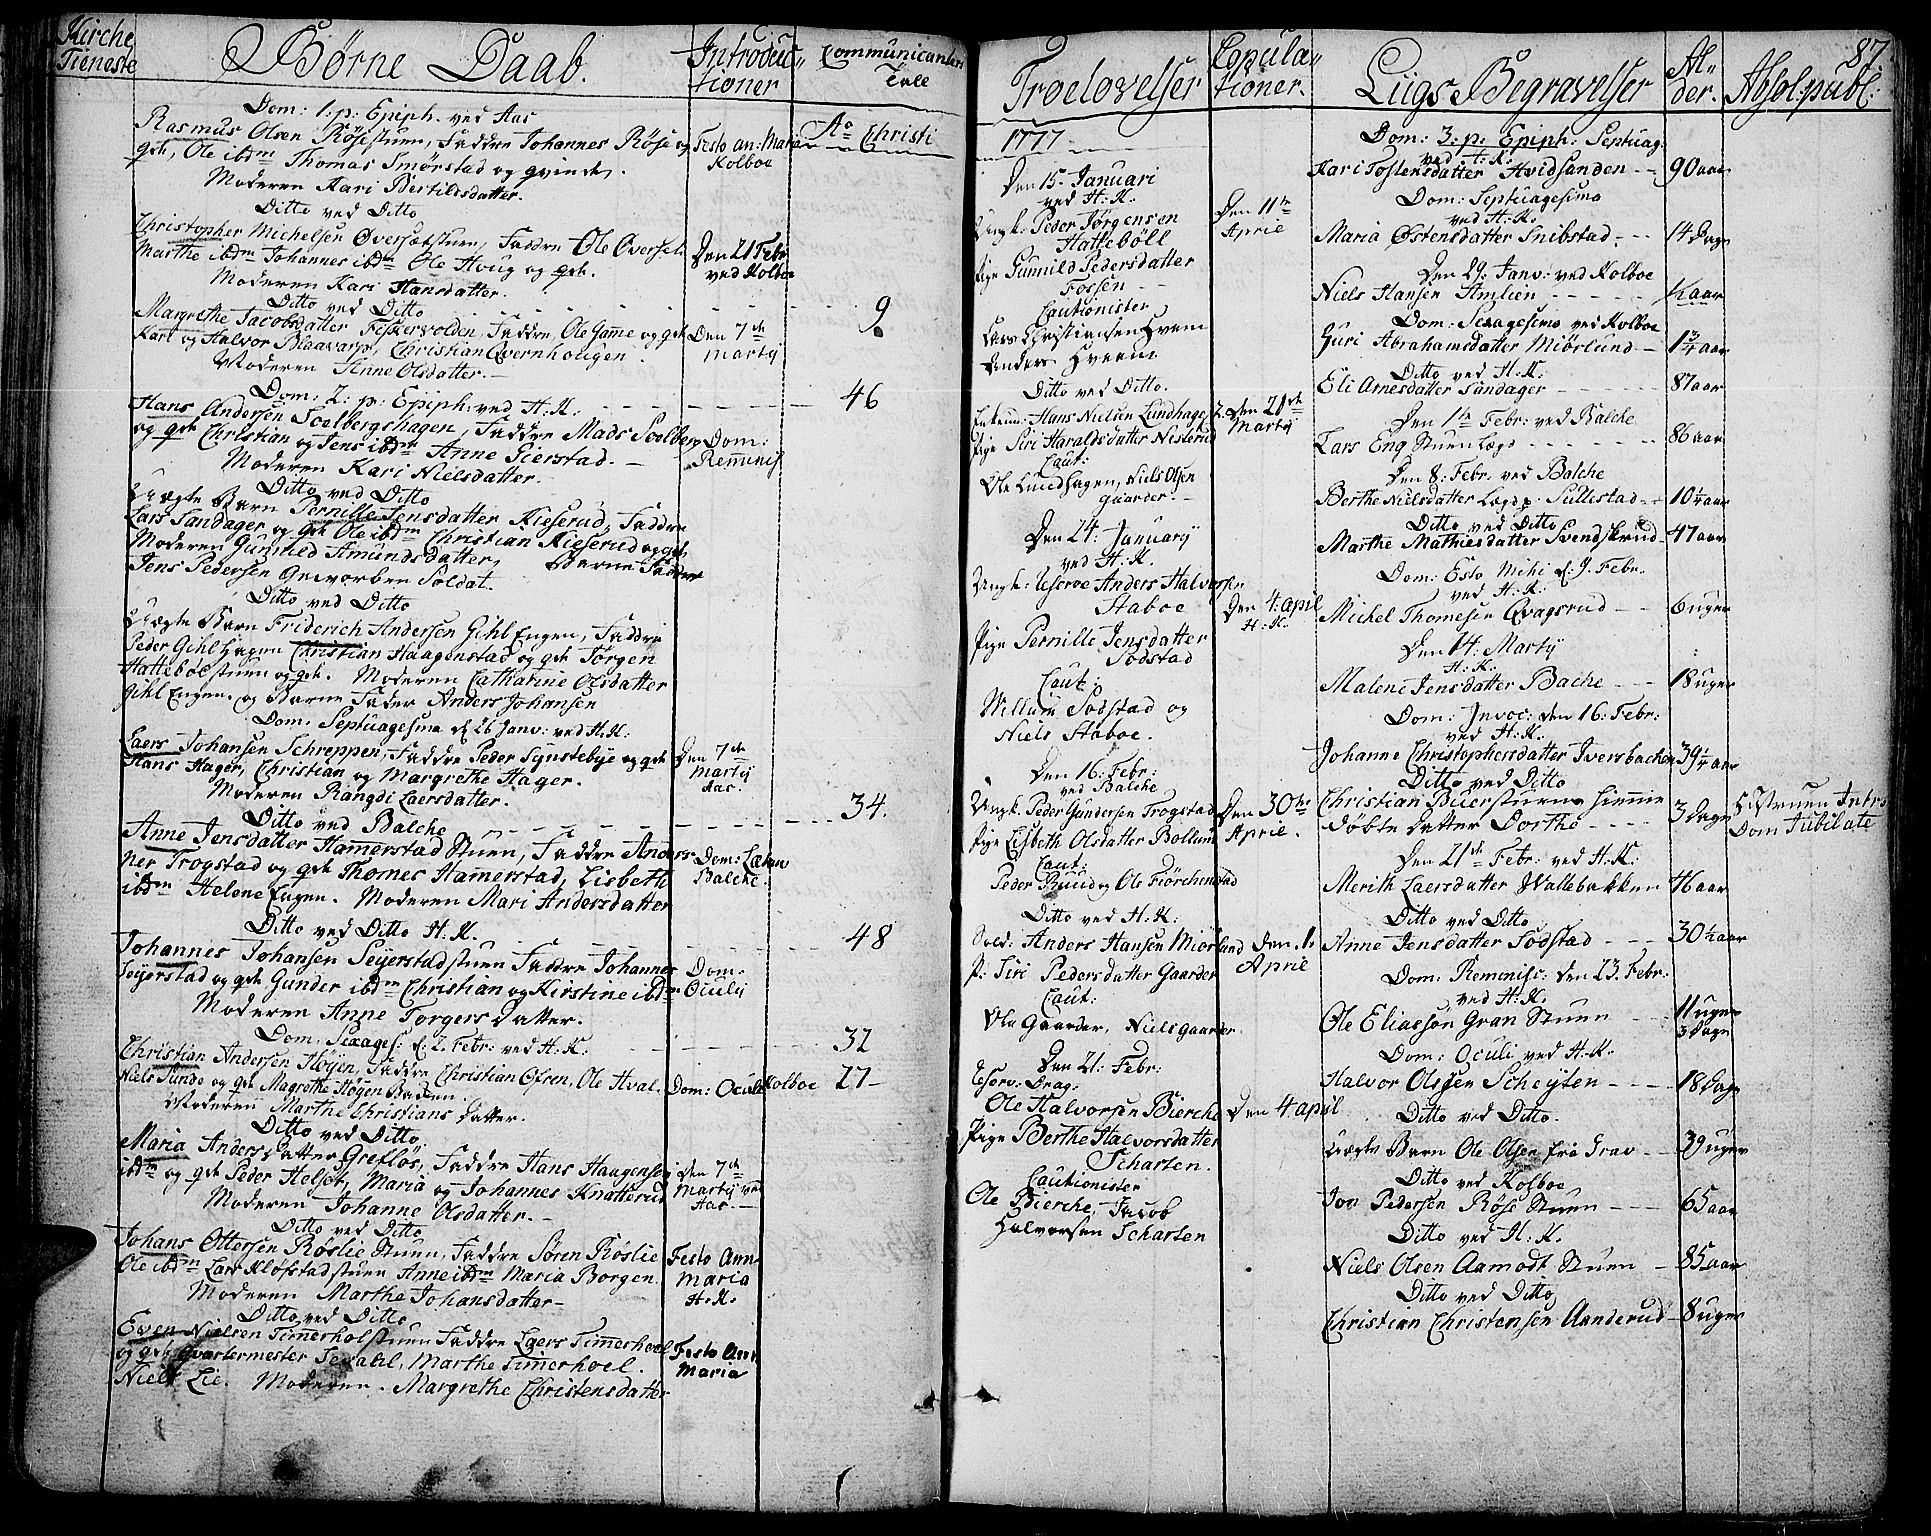 Kirche Tieneste
Børne Daab.
Introduc-tioner
Communicanters Tall
Dom: 1: p: Epiph. ved Aas
Rasmus Olsen Røsestuen, Faddre Johannes Røse og
gde, Ole ibdm Thomas Smørstad og qvinde.
Moderen Kari Bertilsdatter.
Festo an: Maria
Kolboe
Ao Christi
Ditto ved Ditto
Christopher Michelsen Øversætstuen, Faddre Ole Øverset
Marthe ibdm Johannes ibdm Ole Houg og gde.
Moderen Kari Hansdatter.
Den 21 Febr
ved Kolboe
Ditto ved Ditto
9
Margrethe Jacobsdatter Feskervolden, Faddre, Ole Game og gde
Kari og Halvor Blaavarp, Christian Qvernhougen.
Moderen Anne Olsdatter.
Den 7de
Martij
Dom: 2: p: Epiph: ved H: K:
46
Hans Andersen Soelbergshagen, Faddre Mads Soelberg
og gde Christian og Jens ibdm Anne Gierstad.
Moderen Kari Nielsdatter.
Dom:
Reminis
Ditto ved Ditto
Uægte Barn Pernille Jensdatter Kieserud, Faddre
Lars Sandager og gde Ole ibdm Christian Kieserud og gde
Moderen Gunnild Amundsdatter, Barne Fader
Jens Pedersen Gevorben Soldat.
Ditto ved Ditto
Uægte Barn Friderich Andersen Gihl Engen, Faddre
Peder Gihl Hagen Christian Haagenstad og gde Jørgen
Hatteboe stuen og gde. Moderen Catharine Olsdatter
Gihl Engen. og Barne Fader Anders Johansen
Dom: Septuagesima d. 26 Janv: ved H: K:
Laers Johansen Schreppen, Faddre Peder Synstebye og gde
Hans Hager, Christian og Margrethe Hager.
Moderen Rangdi Laersdatter.
Den 7de
Martij
Aas.
Ditto ved Balche
34.
Anne Jensdatter Hamerstad Stuen, Faddre Anders
Per Trogstad og gde Thomes Hamerstad, Lisbeth
ibdm Helene Engen. Moderen Mari Andersdatter
Dom: Lætare
Balche.
Ditto ved Ditto H. K.
48
Johannes Johansen Seyerstadstuen Faddre Johannes
Seyerstad og gde Gunder ibdm Christian og Kirstine ibdm
Moderen Anne Torgers Datter.
Dom:
Oculij
Dom: Sexages: d. 2. Febr: ved H: K:
32
Christian Andersen Høyen, Faddre Christian Ofren, Ole Hval.
Niels Sunde og gde Magrethe Høyen Backen.
Moderen Marthe Christians Datter.
Dom: Oculi Kolboe 27
Ditto ved Ditto
Maria Anders Datter Grefløs, Faddre Hans Haugensen
ibdm og gde Peder Helset, Maria og Johannes Knatterud
Moderen Johanne Olsdatter.
Den 7de
Martij ved
Aas.
Ditto ved Ditto
Johans Ottersen Røslie Stuen, Faddre Søren Røslie
Ole ibdm Lars Klofstadstuen Anne ibdm Maria Borgen
Moderen Marthe Johansdatter
Festo Ann
Maria
H. K.
Ditto ved Ditto
Even Nielsen Timerholstuen Faddre Laers Timerhoel
og gde Qvartermester Sevahl, Marthe Timerhoel.
Niels Lie. Moderen. Margrethe Christensdatter
Festo Ann
Maria
87.
Troelovelser
Copula-tioner.
Liigs Begravelser
Al-der.
Absol: publ:
1777
Den 15. Januari
ved H: K:
Ungk: Peder Jørgensen
Hattebøll
Pige Gunnild Pedersdatter
Fossen
Cautionister
Lars Christiansen Hveem
Anders Hveem
Den 11te
Aprie
Ditto ved Ditto.
Enkem: Hans Nielsen Lundhagen
Pige Siri Haraldsdatter Nesterud
Caut:
Ole Lundhagen, Niels Olsen
Gaarder
Den 21de
Martij
Den 24: January
ved H. K.
Ungk: Anders Halvorsen
Staboe
Pige Pernille Jensdatter
Sodstad
Caut:
Willum Sodstad og
Niels Staboe.
Den 4: april
H. K.
Den 16: Febr:
ved Balche
Ungk. Peder Gundersen Trogstad
Pige Lisbeth Olsdatter Bollum
Caut:
Peder Ruud og Ole Fiørchenstad
Den 30te
Aprie.
Ditto ved H: K:
Sold: Anders Hansen Miørlund
P: Siri Pedersdatter Gaarder
Caut:
Ole Gaarder, Niels Gaarder.
Den 1.
Aprie
Den 21: Febr:
Drag:
Ole Halvorsen Bierche
Pige Berthe Halvorsdatter
Scharten.
Cautionister
Ole Bierche, Jacob
Halvorsen Scharten
Den 4 april
Dom: 3: p: Epiph: Septuag:
ved H: K:
Kari Tostensdatter Hvidsanden 90 aar
Dom: Septuagesima
ved H: K.
Maria Østensdatter Snibstad 14 Dage
Den 29. Janv: ved Kolboe
Niels Hansen Amlien ½ aar
Dom: Sexagesima ved Kolboe
Guri Abrahamsdatter Miørlund 1¾ aar
Ditto ved H: K:
Eli Arnesdatter Sandager 87 aar
Den 1te Febr: ved Balche
Lars Eng Stuen Logs 86 aar
Den 8. Febr. ved Balche
Berthe Nielsdatter Logs p. Sullestad 10½ aar
Ditto ved Ditto
Marthe Mathiesdatter Svendskrud 47 aar
Dom: Esto Mihi d. 9. Febr.
ved H: K:
Michel Thomesen Qvagsrud 6 uger
Den 14. Martij
H: K:
Malene Jensdatter Bache 18 uger
Dom: Invoc: den 16: Febr:
ved H: K.
Johanne Christophersdatter Iversbachen 39¼ aar
Ditto ved Ditto
Christian Biierstuens hiemme
døbte Datter Dorthe 3 Dage
Hustruen Intro
Dom Jubilate
Den 21de Febr: ved H: K:
Merith Laersdatter Wallebakken 46 aar
Ditto ved Ditto
Anne Jensdatter Sodstad 30½ aar
Dom: Reminisc: den 23. Febr:
ved H: K.
Ole Eliassøn Gran Stuen 11 uger
3 Dage
Dom: Oculi ved H: K.
Halvor Olssen Scheyten 18 Dage
Ditto ved Ditto.
Uægte Barn Ole Olsen fra Grav 39 uger
Ditto ved Kolboe
Jon Pedersen Røse Stuen 65 aar
Ditto ved H. K.
Niels Olsen Aamodt Stuen 85 aar
Ditto ved Ditto
Christian Christensen Aanderud 8 uger